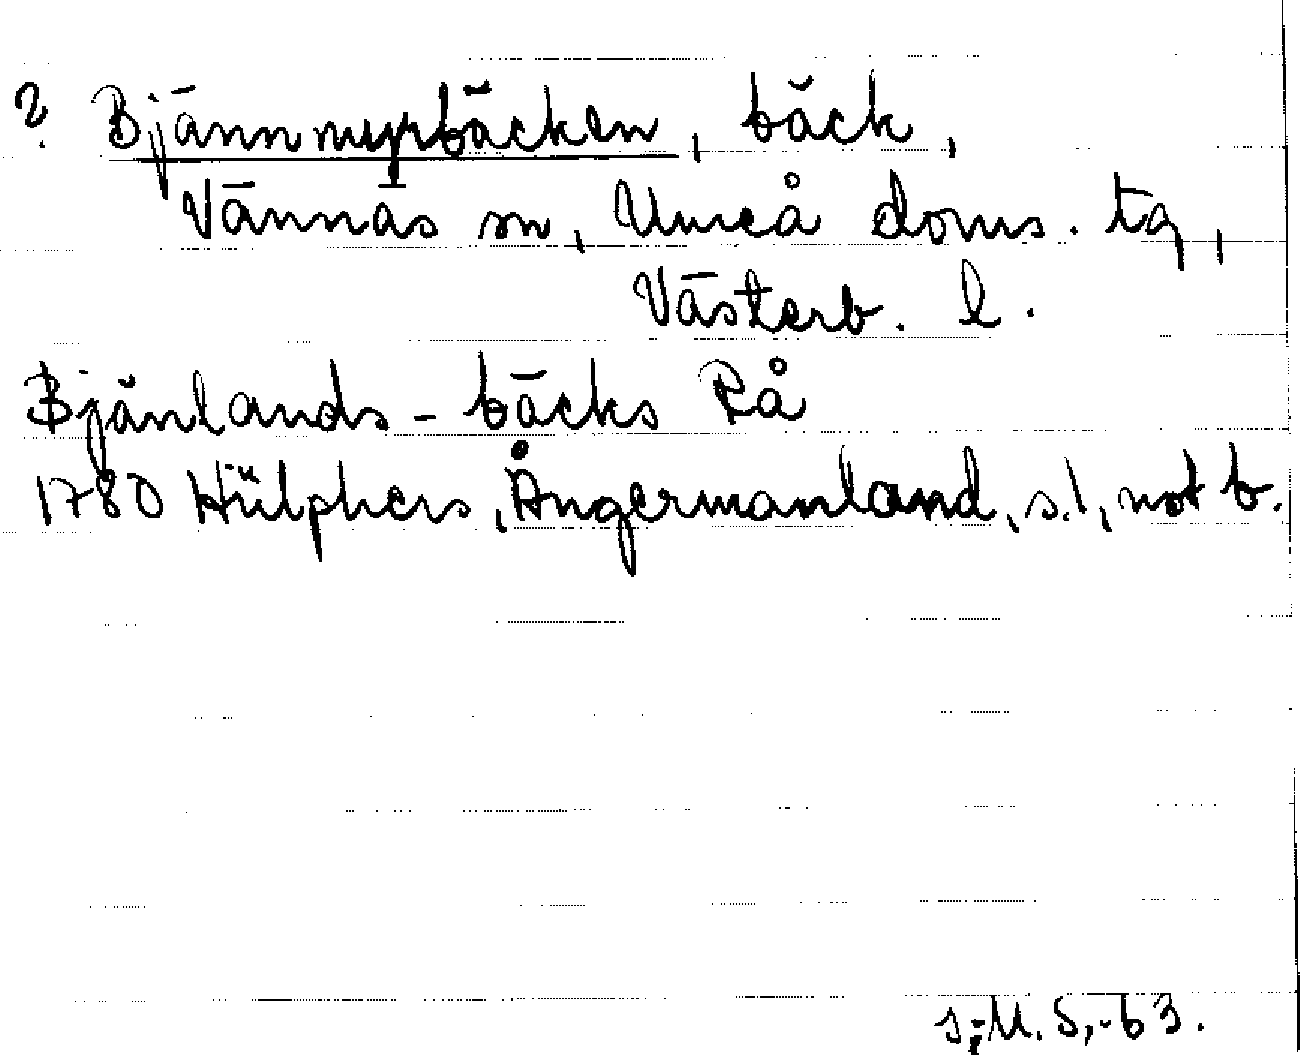 ? Bjännmyrbäcken, bäck,
Vännäs sn, Umeå doms. tg,
Västerb. l.
Bjänlands-bäcks Rå
1780 Hülphers, Ångermanland, s. 1, not b.